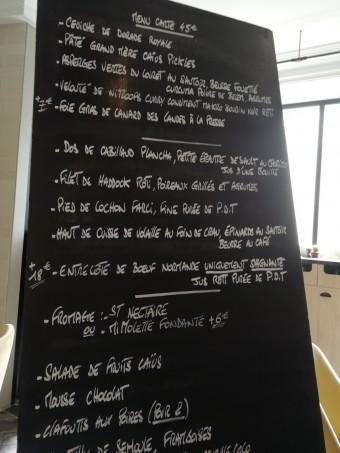 MENU CARTE 45€
- CEVICHE DE DORADE ROYALE
- PÂTÉ GRAND MÈRE CAÏUS PICKLES
- ASPERGES VERTES DU LOIRET AU SAUTOIR BEURRE FOUETTÉ
CURCUMA POIVRE DE AGRUMES
- VELOUTÉ DE CURRY CONDIMENT BOUDIN NOIR RÔTI
- FOIE GRAS DE CANARD DES LANDES À LA PRESSE
- DOS DE CABILLAUD PLANCHA, PETITE ÉPAUTRE DE SAULT AU
JUS D'UNE
- FILET DE HADDOCK RÔTI, POIREAUX GRILLÉS ET AGRUMES
- PIED DE COCHON FARCI, FINE PURÉE DE P.D.T
- HAUT DE CUISSE DE VOLAILLE AU FOIN DE CRAU, ÉPINARDS AU SAUTOIR
BEURRE AU CAFÉ
+ 18€ - ENTRECÔTE DE BOEUF NORMANDE UNIQUEMENT SAIGNANTE
JUS RÔTI PURÉE DE P.D.T
- FROMAGE : - ST NECTAIRE
OU - MIMOLETTE FONDANTE +6€
- SALADE DE FRUITS CAÏUS
- MOUSSE CHOCOLAT
- CLAFOUTIS AUX POIRES (POUR 2)
DE SEMOULE, FRAMBOISES
COCO